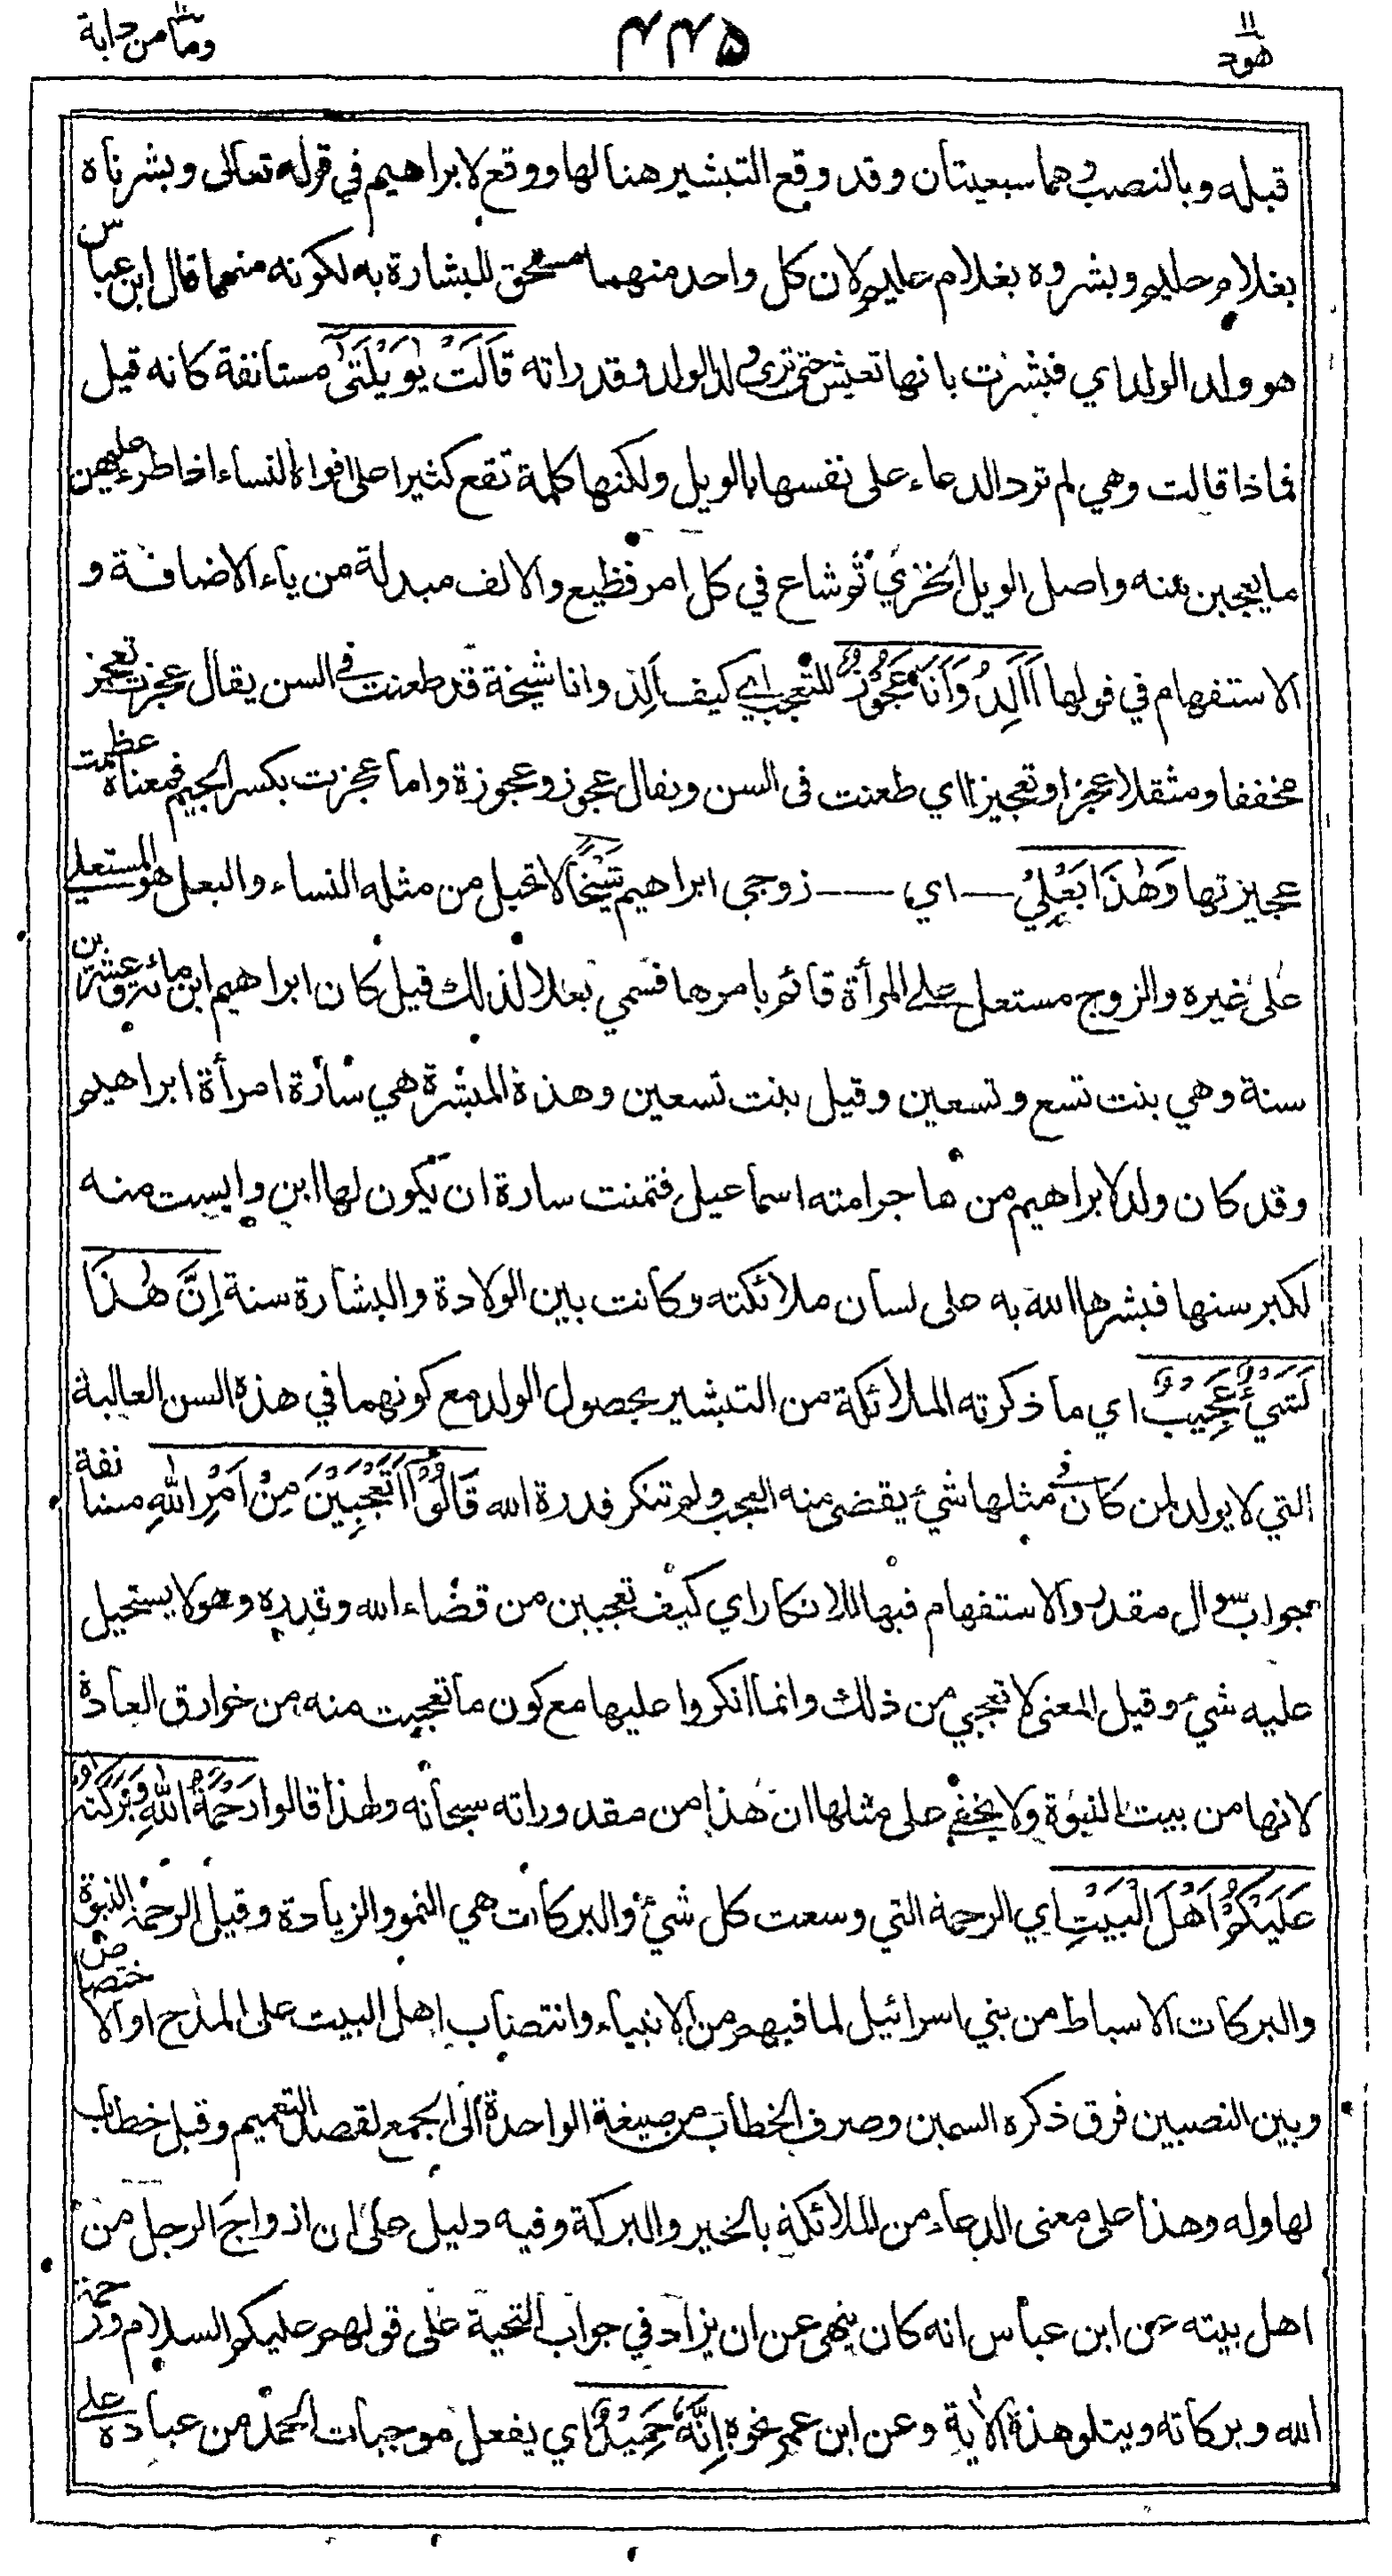 ١١ هود
٤٤٥
وما من دابة
قبله وبالنصب وهما سبعيتان وقد وقع التبشير هنا لها ووقع لابراهيم في قوله تعالى وبشرناه
بغلام حليم وبشروه بغلام عليم لان كل واحد منهما مستحق للبشارة به لكونه منهما قال ابن عباس
هو ولد الولد اي فبشرت بانها تعيش حتى ترى ولد الولد وقد راته قَالَتْ يٰوَيْلَتٰى مستانفة كانه قيل
فماذا قالت وهي لم ترد الدعاء على نفسها بالويل ولكنها كلمة تقع كثيرا على افواه النساء اذا طرء عليهن
ما يعجبن منه واصل الويل الخزي ثم شاع في كل امر فظيع والالف مبدلة من ياء الاضافة و
الاستفهام في قولها أَأَلِدُ وَأَنَا عَجُوْزٌ للتعجب اي كيف ألد وانا شيخة قد طعنت في السن يقال عجزت تعجز
مخففا ومثقلا عجزا وتعجيزا اي طعنت في السن ويقال عجوز وعجوزة واما عجزت بكسر الجيم فمعناه عظمت
عجيزتها وَهٰذَا بَعْلِيْ اي زوجي ابراهيم شَيْخًا لا تحبل من مثله النساء والبعل هو المستعلي
على غيره والزوج مستعل على المرأة قائم بامرها فسمي بعلا لذلك قيل كان ابراهيم ابن مائة وعشرين
سنة وهي بنت تسع وتسعين وقيل بنت تسعين وهذه المبشرة هي سارة امرأة ابراهيم
وقد كان ولد لابراهيم من هاجر امته اسماعيل فتمنت سارة ان يكون لها ابن وايست منه
لكبر سنها فبشرها الله به على لسان ملائكته وكانت بين الولادة والبشارة سنة اِنَّ هٰذَا
لَشَيْءٌ عَجِيْبٌ اي ما ذكرته الملائكة من التبشير بحصول الولد مع كونهما في هذه السن العالية
التي لا يولد لمن كان في مثلها شيء يقضي منه العجب ولم تنكر قدرة الله قَالُوْا اَتَعْجَبِيْنَ مِنْ اَمْرِ اللهِ مستانفة
جواب سوال مقدر والاستفهام فيها للانكار اي كيف تعجبين من قضاء الله وقدره وهو لا يستحيل
عليه شيء وقيل المعنى لا تعجبي من ذلك وانما انكروا عليها مع كون ما تعجبت منه من خوارق العادة
لانها من بيت النبوة ولا يخفى على مثلها ان هذا من مقدوراته سبحانه ولهذا قالوا رَحْمَةُ اللهِ وَبَرَكٰتُهٗ
عَلَيْكُمْ اَهْلَ الْبَيْتِ اي الرحمة التي وسعت كل شيء والبركات هي النمو والزيادة وقيل الرحمة النبوة
والبركات الاسباط من بني اسرائيل لما فيهم من الانبياء وانتصاب اهل البيت على المدح او الاختصاص
وبين النصبين فرق ذكره السمين وصرف الخطاب من صيغة الواحدة الى الجمع لقصد التعميم وقيل خطاب
لها وله وهذا على معنى الدعاء من الملائكة بالخير والبركة وفيه دليل على ان ازواج الرجل من
اهل بيته عن ابن عباس انه كان ينهى عن ان يزاد في جواب التحية على قولهم عليكم السلام ورحمة
الله وبركاته ويتلو هذه الاية وعن ابن عمر نحوه اِنَّهٗ حَمِيْدٌ اي يفعل موجبات الحمد من عباده على